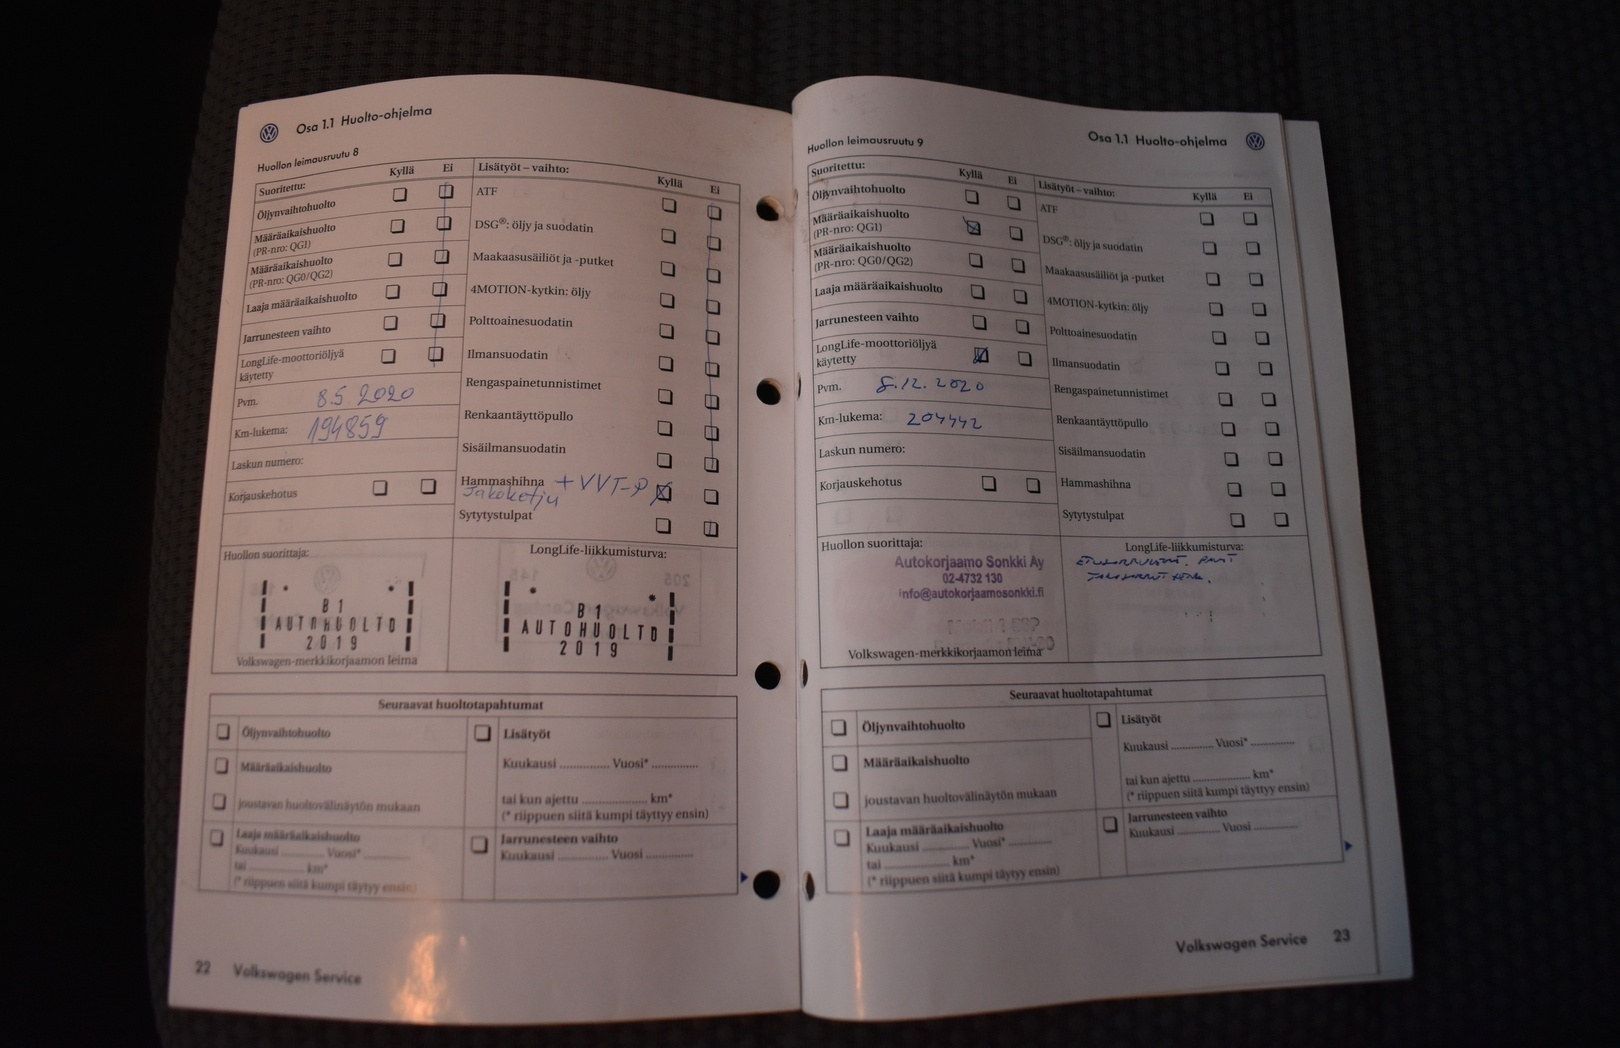 Osa 1.1 Huolto-ohjelma
Huollon leimausruutu 8
Suoritettu: Kyllä Ei
Öljynvaihtohuolto
Määräaikaishuolto
(PR-nro: QG1)
Määräaikaishuolto
(PR-nro: QG0/QG2)
Laaja määräaikaishuolto
Jarrunesteen vaihto
LongLife-moottoriöljyä
käytetty
Pvm. 8.5 2020
Km-lukema: 194859
Laskun numero:
Korjauskehotus
Lisätyöt – vaihto: Kyllä Ei
ATF
DSG®: öljy ja suodatin
Maakaasusäiliöt ja -putket
4MOTION-kytkin: öljy
Polttoainesuodatin
Ilmansuodatin
Rengaspainetunnistimet
Renkaantäyttöpullo
Sisäilmansuodatin
Hammashihna + VVT-P
Jakoketju
Sytytystulpat
Huollon suorittaja:
B1
AUTOHUOLTO
2019
Volkswagen-merkkikorjaamon leima
LongLife-liikkumisturva:
B1
AUTOHUOLTO
2019
Seuraavat huoltotapahtumat
Öljynvaihtohuolto
Määräaikaishuolto
joustavan huoltovälinäytön mukaan
Laaja määräaikaishuolto
Kuukausi ............ Vuosi* ............
tai ............ km*
(* riippuen siitä kumpi täytyy ensin)
Lisätyöt
Kuukausi ............ Vuosi* ............
tai kun ajettu ............ km*
(* riippuen siitä kumpi täyttyy ensin)
Jarrunesteen vaihto
Kuukausi ............ Vuosi ............
22 Volkswagen Service
Osa 1.1 Huolto-ohjelma
Huollon leimausruutu 9
Suoritettu: Kyllä Ei
Öljynvaihtohuolto
Määräaikaishuolto
(PR-nro: QG1)
Määräaikaishuolto
(PR-nro: QG0/QG2)
Laaja määräaikaishuolto
Jarrunesteen vaihto
LongLife-moottoriöljyä
käytetty
Pvm. 8.12.2020
Km-lukema: 204442
Laskun numero:
Korjauskehotus
Lisätyöt – vaihto: Kyllä Ei
ATF
DSG®: öljy ja suodatin
Maakaasusäiliöt ja -putket
4MOTION-kytkin: öljy
Polttoainesuodatin
Ilmansuodatin
Rengaspainetunnistimet
Renkaantäyttöpullo
Sisäilmansuodatin
Hammashihna
Sytytystulpat
Huollon suorittaja:
Autokorjaamo Sonkki Ay
02-4732 130
info@autokorjaamosonkki.fi
Volkswagen-merkkikorjaamon leima
LongLife-liikkumisturva:
Seuraavat huoltotapahtumat
Öljynvaihtohuolto
Määräaikaishuolto
joustavan huoltovälinäytön mukaan
Laaja määräaikaishuolto
Kuukausi ............ Vuosi* ............
tai ............ km*
(* riippuen siitä kumpi täytyy ensin)
Lisätyöt
Kuukausi ............ Vuosi* ............
tai kun ajettu ............ km*
(* riippuen siitä kumpi täyttyy ensin)
Jarrunesteen vaihto
Kuukausi ............ Vuosi ............
Volkswagen Service 23